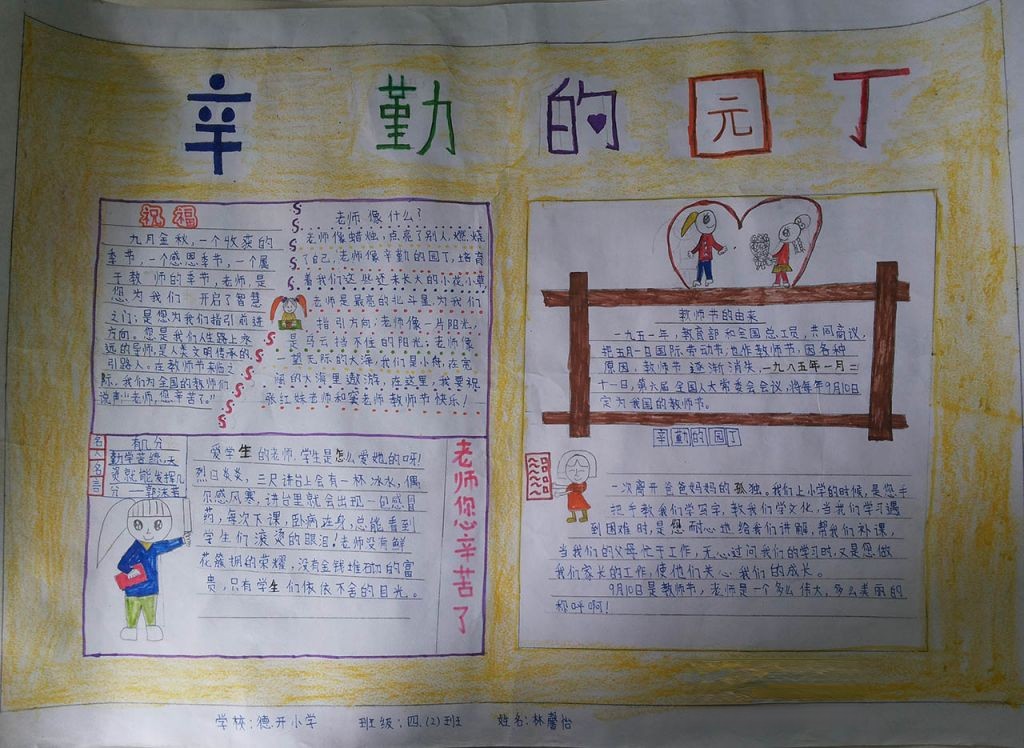 辛勤的园丁
祝福
九月金秋，一个收获的
季节，一个感恩季节，一个属
于教师的季节，老师，是
您为我们开启了智慧
之门；是您为我们指引前进
方向。您是我们人生路上永
远的导师，是人类文明传承的
引路人。在教师节来临之
际，我们为全国的教师们
说声“老师，您辛苦了。”
老师像什么？
老师像蜡烛，点亮了别人，燃烧
了自己，老师像辛勤的园丁，培育
着我们这些还未长大的小花小草，
老师是最亮的北斗星，为我们
指引方向；老师像一片阳光，
是乌云挡不住的阳光；老师像
一望无际的大海，我们是小舟，在宽
阔的大海里遨游，在这里，我要祝
张红妹老师和窦老师教师节快乐！
名人名言
有几分
勤学苦练，天
资就能发挥几
分 —郭沫若
爱学生的老师，学生是怎么爱她的呀！
烈日炎炎，三尺讲台上会有一杯冰水，偶
尔感风寒，讲台里就会出现一包感冒
药，每次下课，卧病在身，总能看到
学生们滚烫的眼泪！老师没有鲜
花簇拥的荣耀，没有金钱堆砌的富
贵，只有学生们依依不舍的目光。
老师您辛苦了
教师节的由来
一九五一年，教育部和全国总工员，共同商议，
把五月一日国际劳动节，也作教师节，因各种
原因，教师节逐渐消失，一九八五年一月二
十一日，第六届全国人大常委会会议，将每年9月10日
定为我国的教师节。
辛勤的园丁
一次离开爸爸妈妈的孤独。我们上小学的时候，是您手
把手教我们学写字，教我们学文化，当我们学习遇
到困难时，是您耐心地给我们讲解，帮我们补课，
当我们的父母忙于工作，无心过问我们的学习时，又是您做
我们家长的工作，使他们关心我们的成长。
9月10日是教师节，老师是一个多么伟大，多么美丽的
称呼啊！
学校：德开小学 班级：四.(2)班 姓名：林馨怡